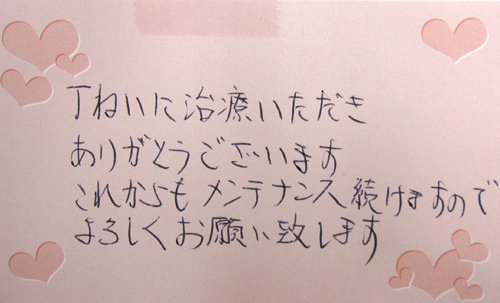 丁ねいに治療いただき
ありがとうございます
これからもメンテナンス続けますので
よろしくお願い致します